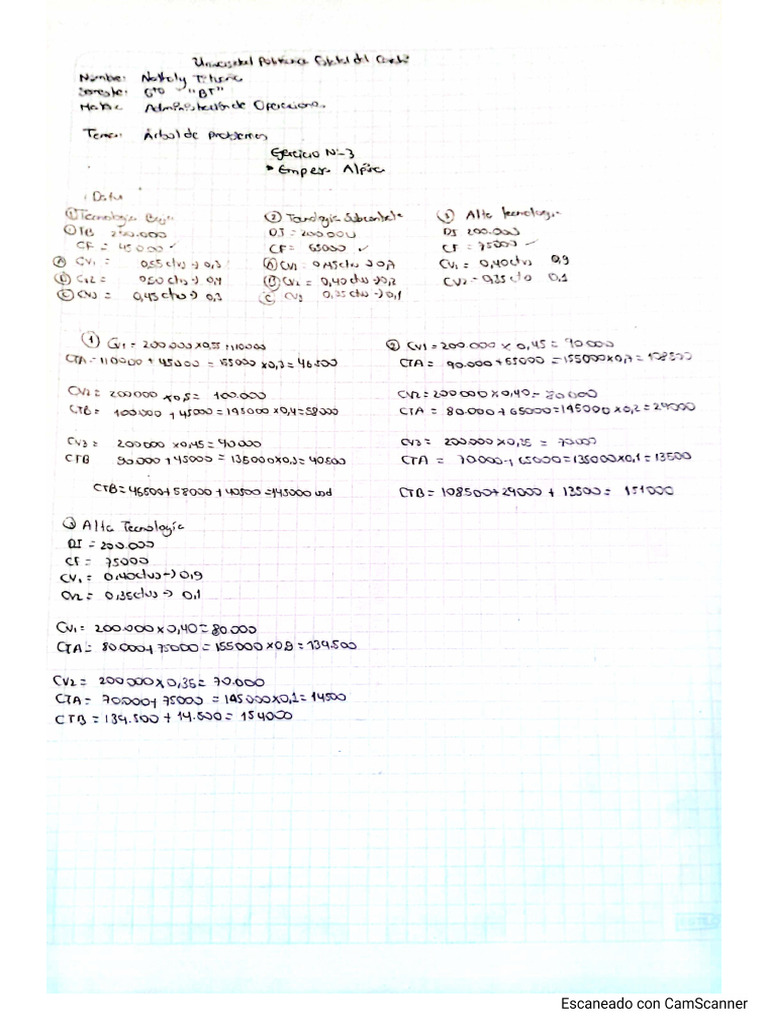 Universidad Politecnica Estatal del Carchi
Nombre: Nathaly
Semestre: 6to "BT"
Materia: Administración de Operaciones
Tema: Árbol de problemas
Ejercicio Nº-3
• Empresa Alpina
Datos
① Tecnologia Baja ② Tecnologia Subcontrata ③ Alta tecnologia
DI 200.000 DI = 200000 DI 200.000
CF = 45000 ✓ CF = 65000 ✓ CF = 75000 ✓
Ⓐ CV1 = 0,55ctvs → 0,3 Ⓐ CV1 = 0,45ctvs → 0,7 CV1 = 0,40ctvs 0,9
Ⓑ CV2 = 0,50 ctvs → 0,4 Ⓑ CV2 = 0,40ctvs → 0,2 CV2 = 0,35 ctv 0,1
Ⓒ CV3 = 0,45 ctvs → 0,3 Ⓒ CV3 0,35 ctvs → 0,1
① CV1 = 200 000 x 0,55 = 110000 ② CV1 = 200.000 x 0,45 = 90.000
CTA = 110000 + 45000 = 155000 x 0,3 = 46.500 CTA = 90.000 + 65000 = 155000 x 0,7 = 108500
CV2 = 200000 x 0,5 = 100.000 CV2 = 200 000 x 0,40 = 80000
CTB = 100.000 + 45000 = 145000 x 0,4 = 58000 CTA = 80.000 + 65000 = 145000 x 0,2 = 29000
CV3 = 200000 x 0,45 = 90000 CV3 = 200.000 x 0,35 = 70.000
CTB 90.000 + 45000 = 135000 x 0,3 = 40500 CTA = 70.000 + 65000 = 135000 x 0,1 = 13500
CTB = 46500 + 58000 + 40500 = 145000 usd CTB = 108500 + 29000 + 13500 = 151000
③ Alta Tecnologia
DI = 200.000
CF = 75000
CV1 = 0,40ctvs → 0,9
CV2 = 0,35ctvs → 0,1
CV1 = 200.000 x 0,40 = 80.000
CTA = 80.000 + 75000 = 155000 x 0,9 = 139.500
CV2 = 200 000 x 0,35 = 70.000
CTA = 70.000 + 75000 = 145000 x 0,1 = 14500
CTB = 139.500 + 14.500 = 154000
Escaneado con CamScanner